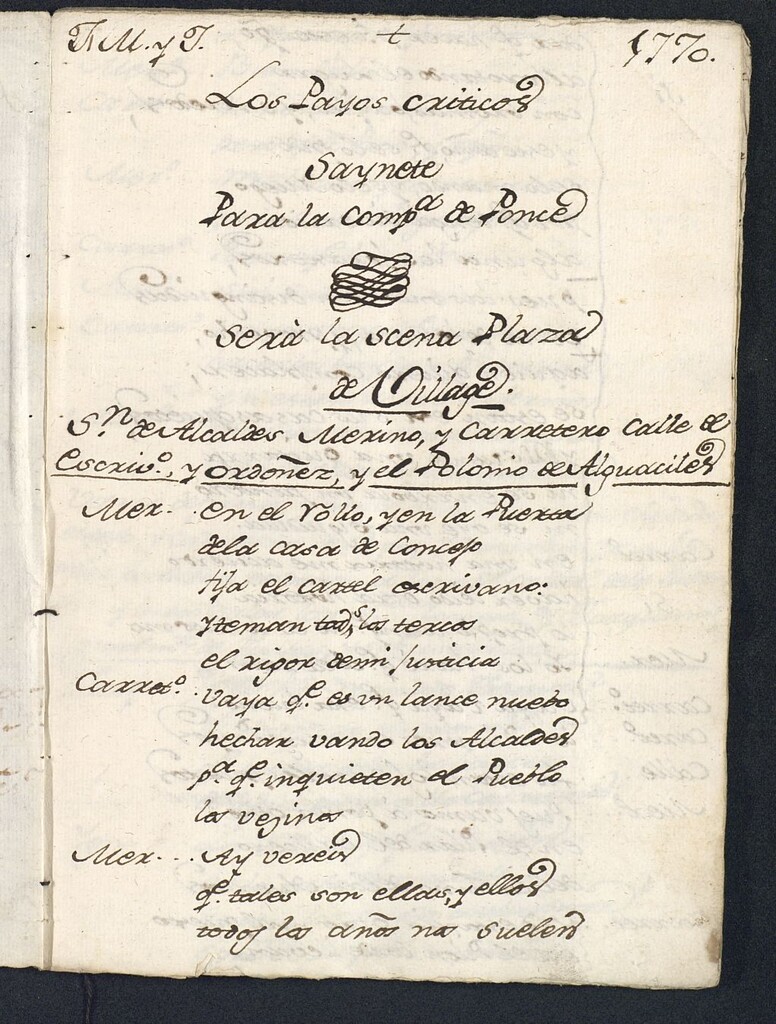 J. M. y J. + 1770.
Los Payos criticos
Saynete
Para la Comp.ª de Ponce
Serà la scena Plaza
de Village.
S.n de Alcaldes Merino, y Carretero Calle de
Escriv.º, y ordoñez, y el Polonio de Alguaciles
Mer. en el Rollo, y en la Puerta
dela casa de Concejo
fija el cartel escrivano:
y teman tod.s los tercos
el rigor de mi Justicia
Carret.º vaya q.e es vn lance nuebo
hechar vando los Alcaldes
p.a q.e inquieten el Pueblo
los vejinos
Mer... Ay vereis
q.e tales son ellas, y ellos
todos los años nos suelen